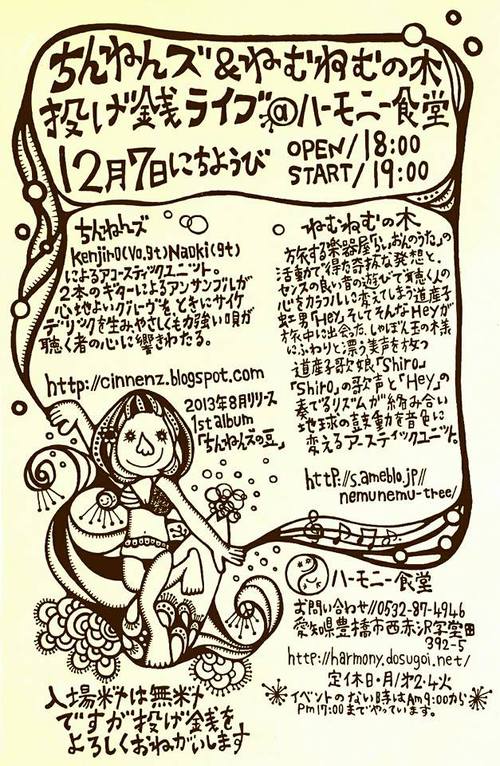 ちんねんズ&ねむねむの木
投げ銭ライブ@ハーモニー食堂
12月7日にちようび
OPEN/18:00
START/19:00
ちんねんズ
Kenjiro(Vo.gt)Naoki(gt)
によるアコースティックユニット。
2本のギターによるアンサンブルが
心地よいグルーヴを、ときにサイケ
デリックを生みやさしくも力強い唄が
聴く者の心に響きわたる。
http://cinnenz.blogspot.com
2013年8月リリース
1st album
「ちんねんズの豆」
ねむねむの木
旅する楽器屋「らぃおんのうた」の
活動で得た奇抜な発想と、
センスの良い音の遊びで聴く人の
心をカラフルに変えてしまう道産子
虹男「Hey」。そしてそんなHeyが
旅中に出会た、しゃぼん玉の様
にふわりと漂う美声を放つ
道産子歌娘「Shiro」
「Shiro」の歌声と「Hey」の
奏でるリズムが絡み合い
地球の鼓動を音色に
変えるアースティックユニット。
http://s.ameblo.jp//
nemunemu-tree/
ハーモニー食堂
お問い合わせ//0532-87-4946
愛知県豊橋市西赤沢字堂田
392-5
http://harmony.dosugoi.net/
定休日・月/第2.4火
イベントのない時はAm9:00から
Pm17:00までやっています。
入場料は無料
ですが投げ銭を
よろしくおねがいします